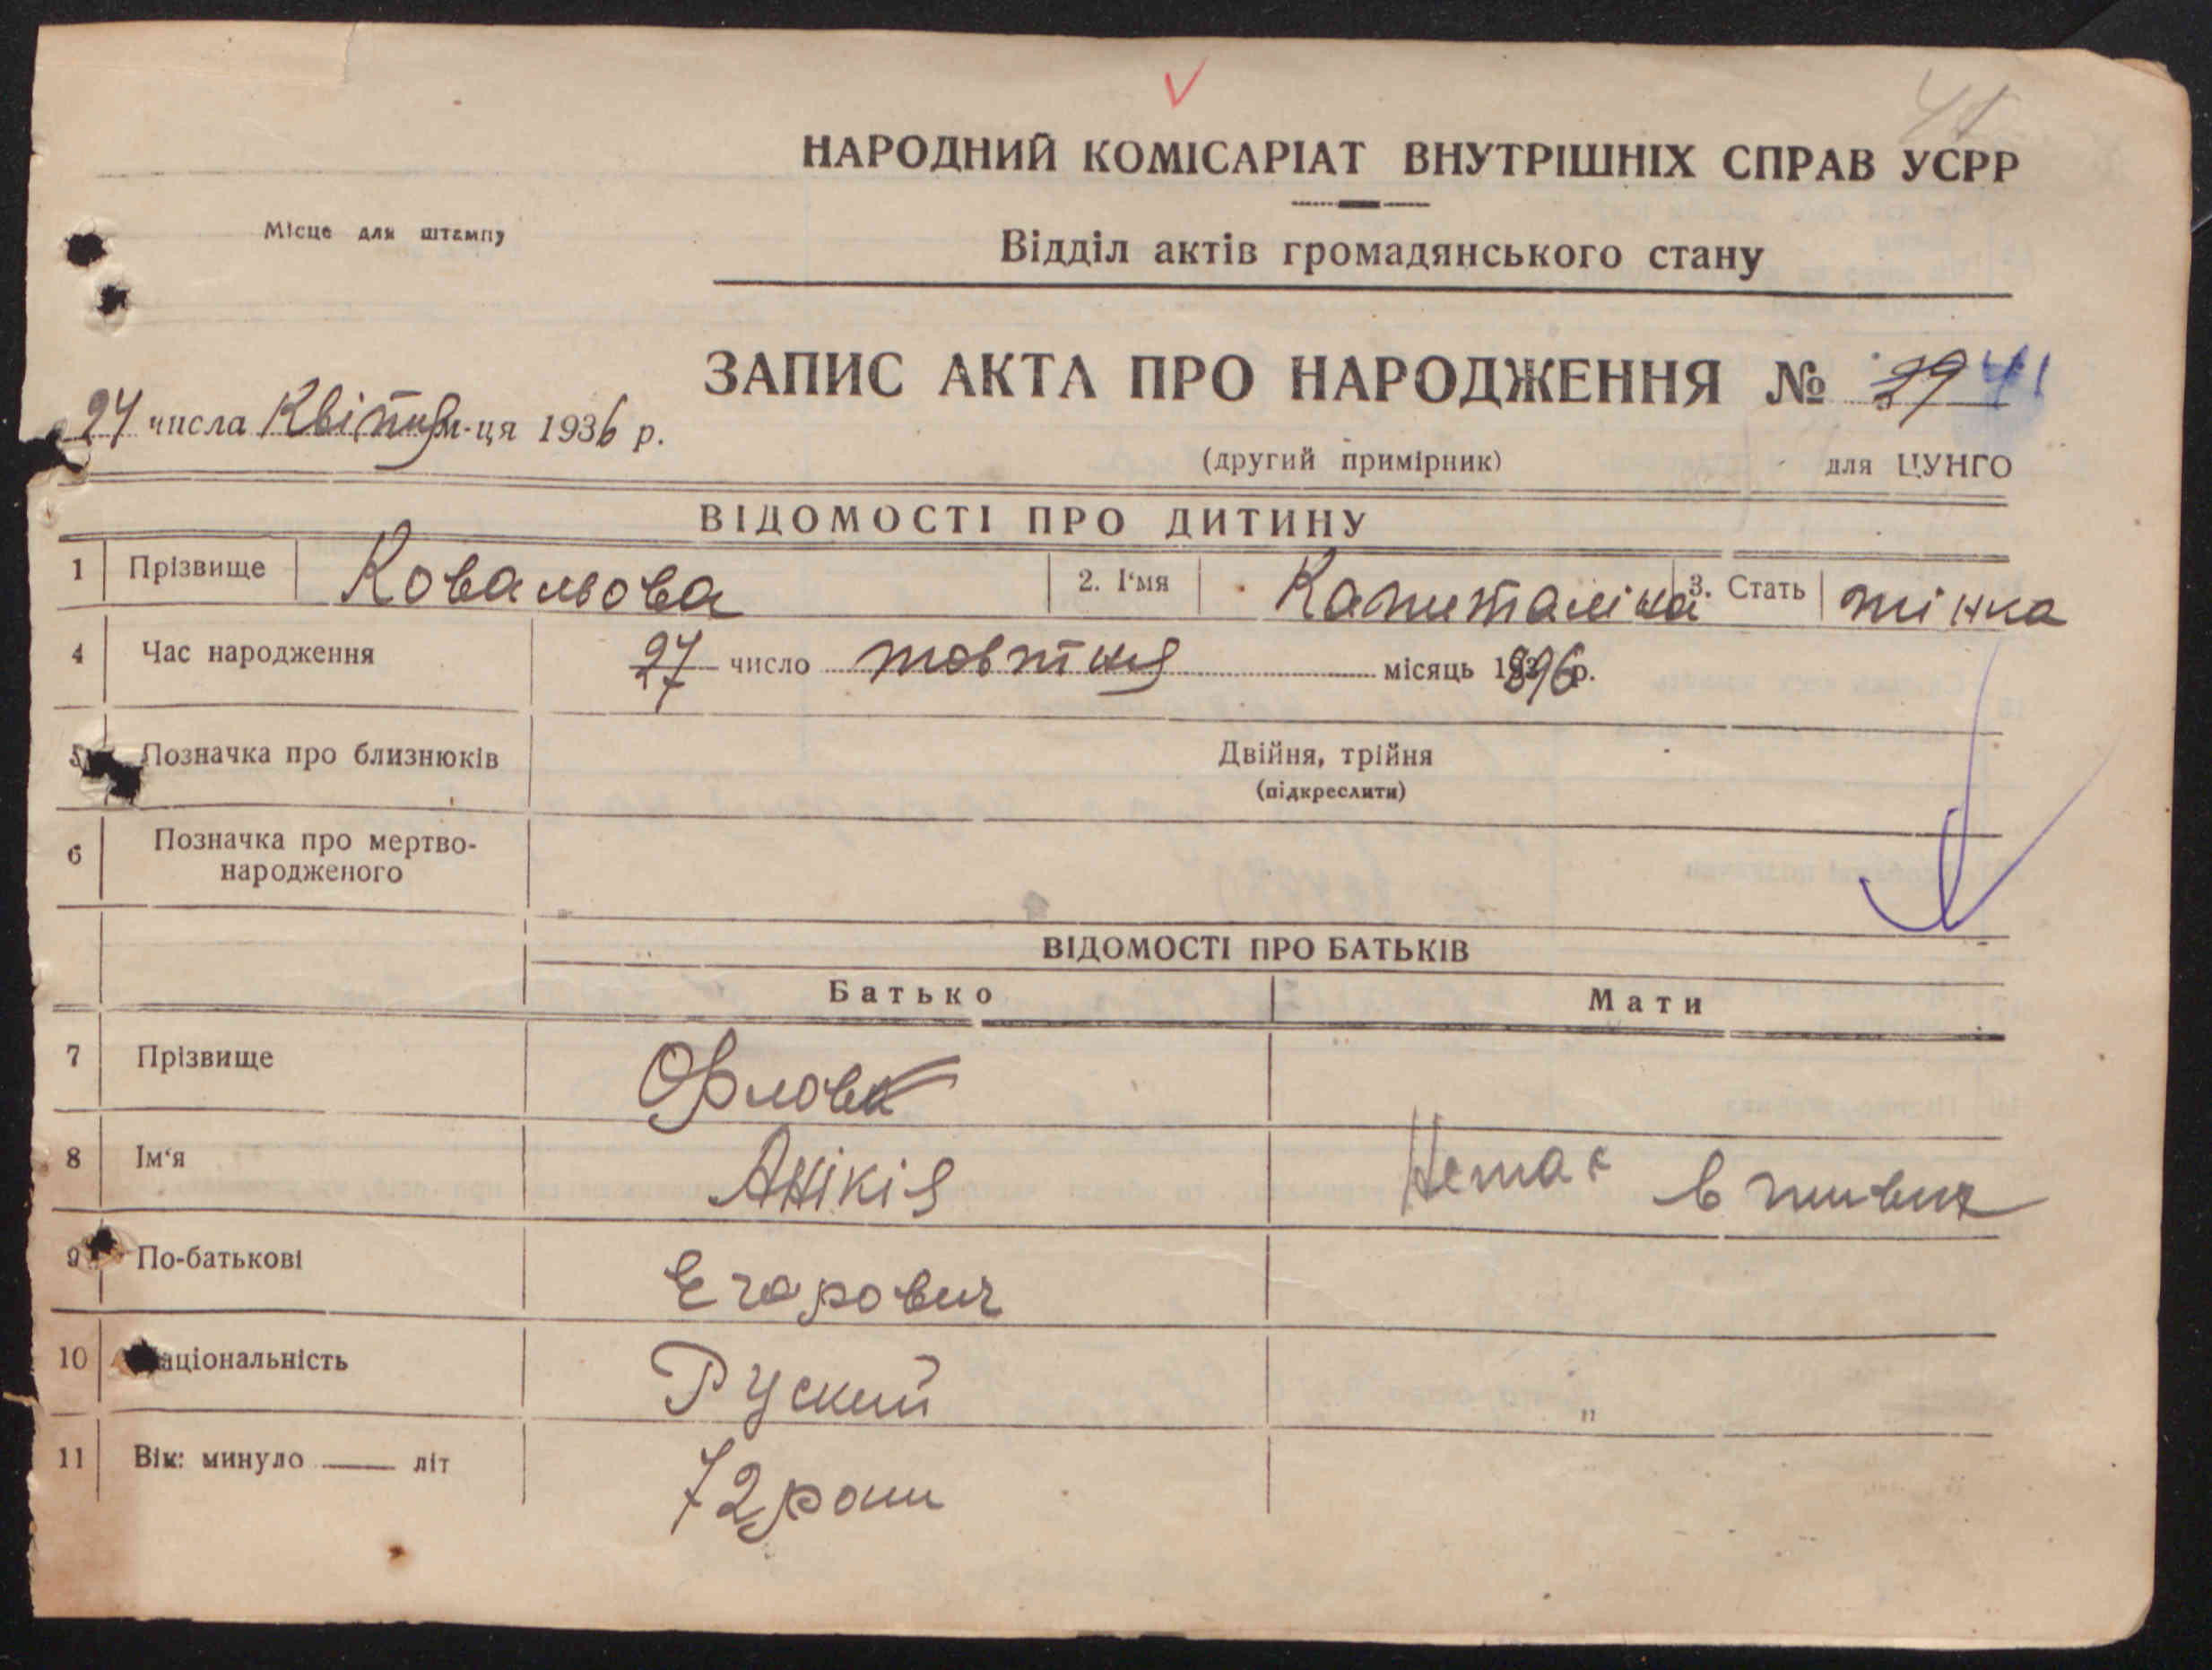 41
НАРОДНИЙ КОМІСАРІАТ ВНУТРІШНІХ СПРАВ УСРР
Місце для штампу
Відділ актів громадянського стану
ЗАПИС АКТА ПРО НАРОДЖЕННЯ № 39 41
27 числа Квітня м-ця 1936 р.
(другий примірник) для ЦУНГО
ВІДОМОСТІ ПРО ДИТИНУ
1 Прізвище Ковальова 2. І'мя Капиталіна 3. Стать жінка
4 Час народження 27 число жовтня місяць 1896 р.
5 Позначка про близнюків Двійня, трійня
(підкреслити)
6 Позначка про мертво-
народженого
ВІДОМОСТІ ПРО БАТЬКІВ
Батько Мати
7 Прізвище Орлов
8 Ім'я Анікій Немає в живих
9 По-батькові Єгорович
10 Національність Руский "
11 Вік: минуло літ 72 роки